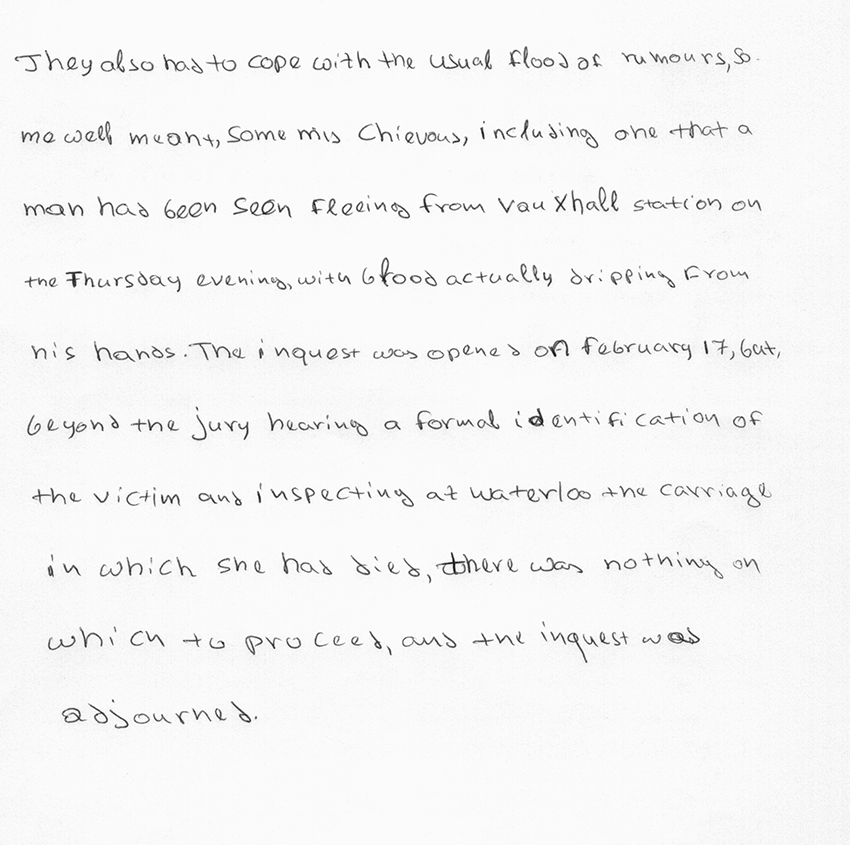 They also had to cope with the usual flood of rumours, so-
me well meant, some mis chievous, including one that a
man had been seen fleeing from Vauxhall station on
the Thursday evening, with blood actually dripping from
his hands. The inquest was opened on february 17, but,
beyond the jury hearing a formal identification of
the victim and inspecting at waterloo the carriage
in which she had died, there was nothing on
which to proceed, and the inquest was
adjourned.